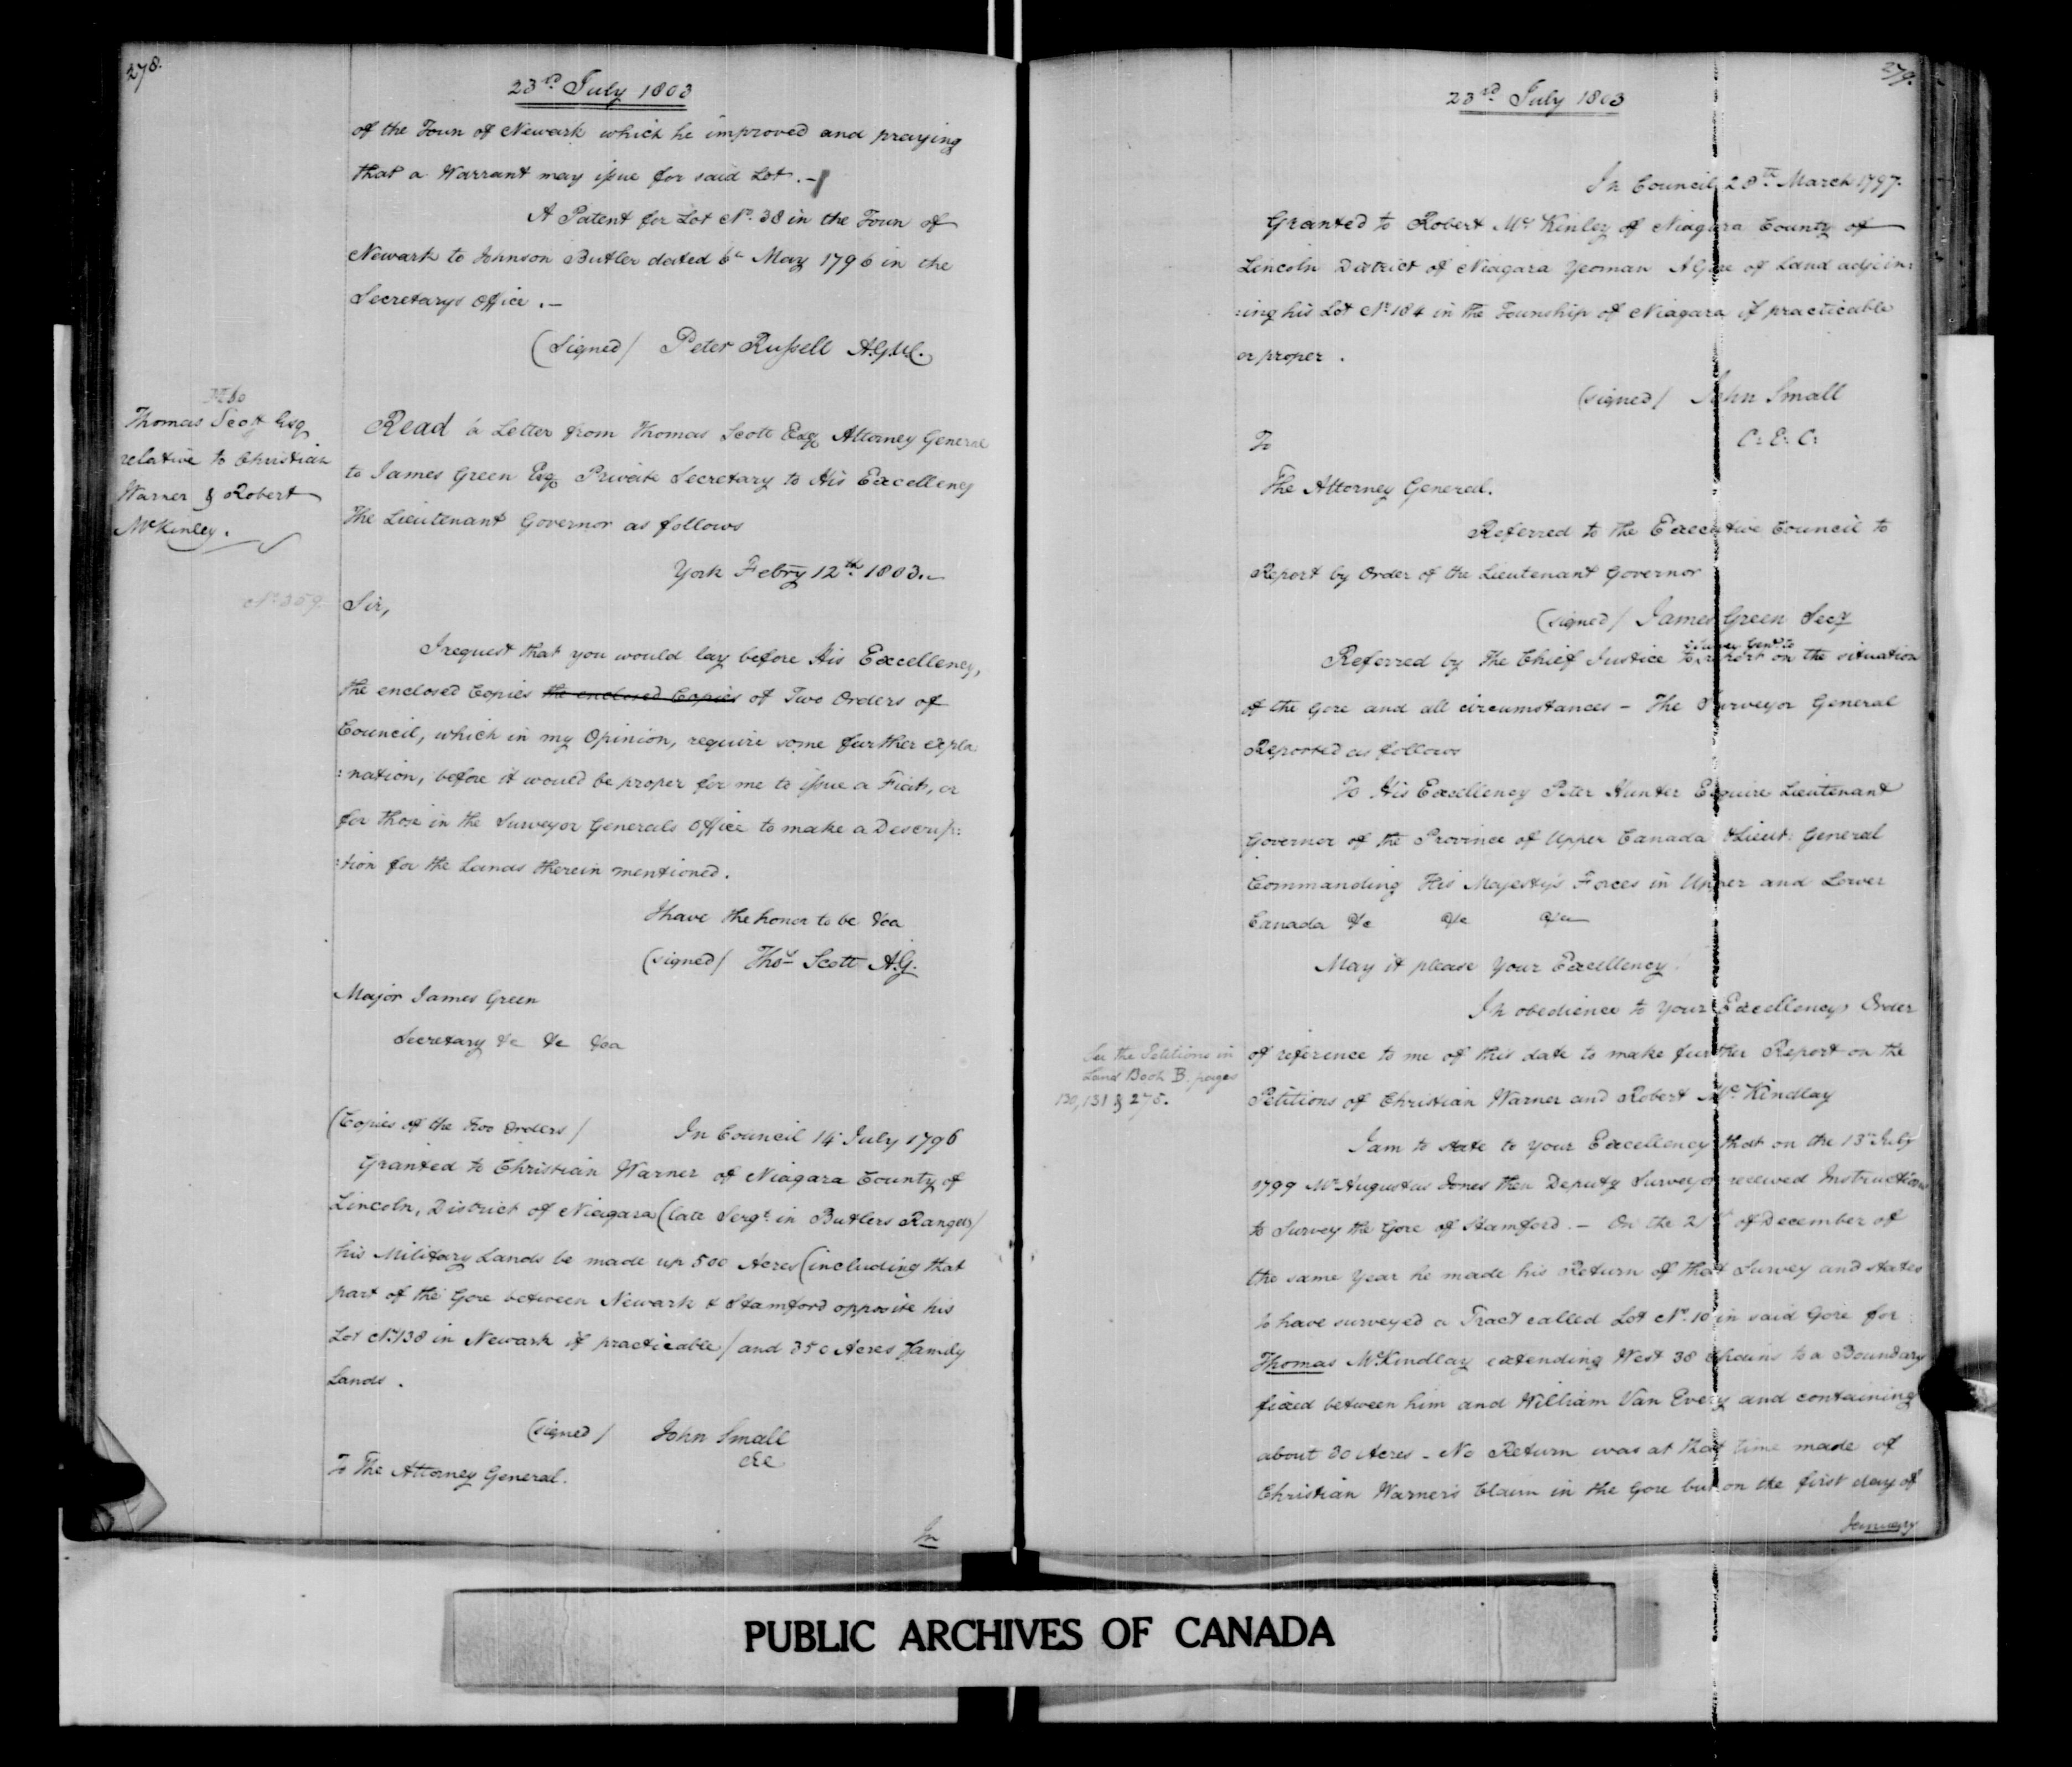 278.
23rd July 1803
of the Town of Newark which he improved and praying
that a Warrant may issue for said Lot. -
A Patent for Lot No. 38 in the Town of
Newark to Johnson Butler dated 6th May 1796 in the
Secretarys Office. -
(Signed/ Peter Russell A.G.U.C.
Thomas Scott Esq
relative to Christian
Warner & Robert
McKinley.
Read a Letter from Thomas Scott Esq Attorney General
to James Green Esq Private Secretary to His Excellency
The Lieutenant Governor as follows
York Febry 12th 1803.
No 359
Sir,
I request that you would lay before His Excellency,
the enclosed Copies the enclosed Copies of Two Orders of
Council, which in my Opinion, require some further expla
:nation, before it would be proper for me to issue a Fiat, or
for those in the Surveyor Generals Office to make a Descrip:
:tion for the Lands therein mentioned.
I have the honor to be &ca
(signed/ Thos Scott A.G.
Major James Green
Secretary &c &c &ca
(Copies of the Two Orders/
In Council 14 July 1796
Granted to Christian Warner of Niagara County of
Lincoln, District of Niagara (late Sergt in Butlers Rangers/
his Military Lands be made up 500 Acres (including that
part of the Gore between Newark & Stamford opposite his
Lot No 138 in Newark if practicable/ and 350 Acres Family
Lands.
(signed/ John Small
CEC
To The Attorney General.
In
279.
23rd July 1803
In Council 28th March 1797.
Granted to Robert Mc Kinley of Niagara County of
Lincoln District of Niagara Yeoman A Gore of Land adjoin:
:ing his Lot No 184 in the Township of Niagara if practicable
or proper.
(signed/ John Small
C: E: C:
To
The Attorney General.
Referred to the Executive Council to
Report by Order of the Lieutenant Governor
(signed/ James Green Secy
Surveyor Genl to
Referred by The Chief Justice to report on the situation
of the Gore and all circumstances - The Surveyor General
Reported as follows
To His Excellency Peter Hunter Esquire Lieutenant
Governor of the Province of Upper Canada & Lieut: General
Commanding His Majesty's Forces in Upper and Lower
Canada &c &c &ca
May it please Your Excellency
In obedience to Your Excellencys Order
See the Petitions in
Land Book B. pages
130, 131 & 275.
of reference to me of this date to make further Report on the
Petitions of Christian Warner and Robert Mc Kindlay
I am to state to Your Excellency that on the 13th July
1799 Mr Augustus Jones then Deputy Surveyor received Instructions
to Survey the Gore of Stamford. - On the 21st of December of
the same Year he made his Return of that Survey and states
to have surveyed a Tract called Lot No. 10 in said Gore for
Thomas McKindlay extending West 38 Chains to a Boundary
fixed between him and William Van Every and containing
about 30 Acres - No Return was at that time made of
Christian Warner's Claim in the Gore but on the first day of
January
PUBLIC ARCHIVES OF CANADA